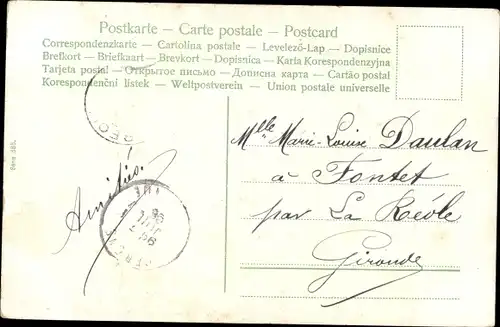 Postkarte — Carte postale — Postcard
Correspondenzkarte — Cartolina postale — Levelező-Lap — Dopisnice
Brefkort — Briefkaart — Brevkort — Dopisnica — Karta Korespondenzyjna
Tarjeta postal — Открытое письмо — Дописна карта — Cartão postal
Korespondenční lístek — Weltpostverein — Union postale universelle
Mlle Marie-Louise Daulan
à Fontet
par La Réole
Gironde
Amitiés.